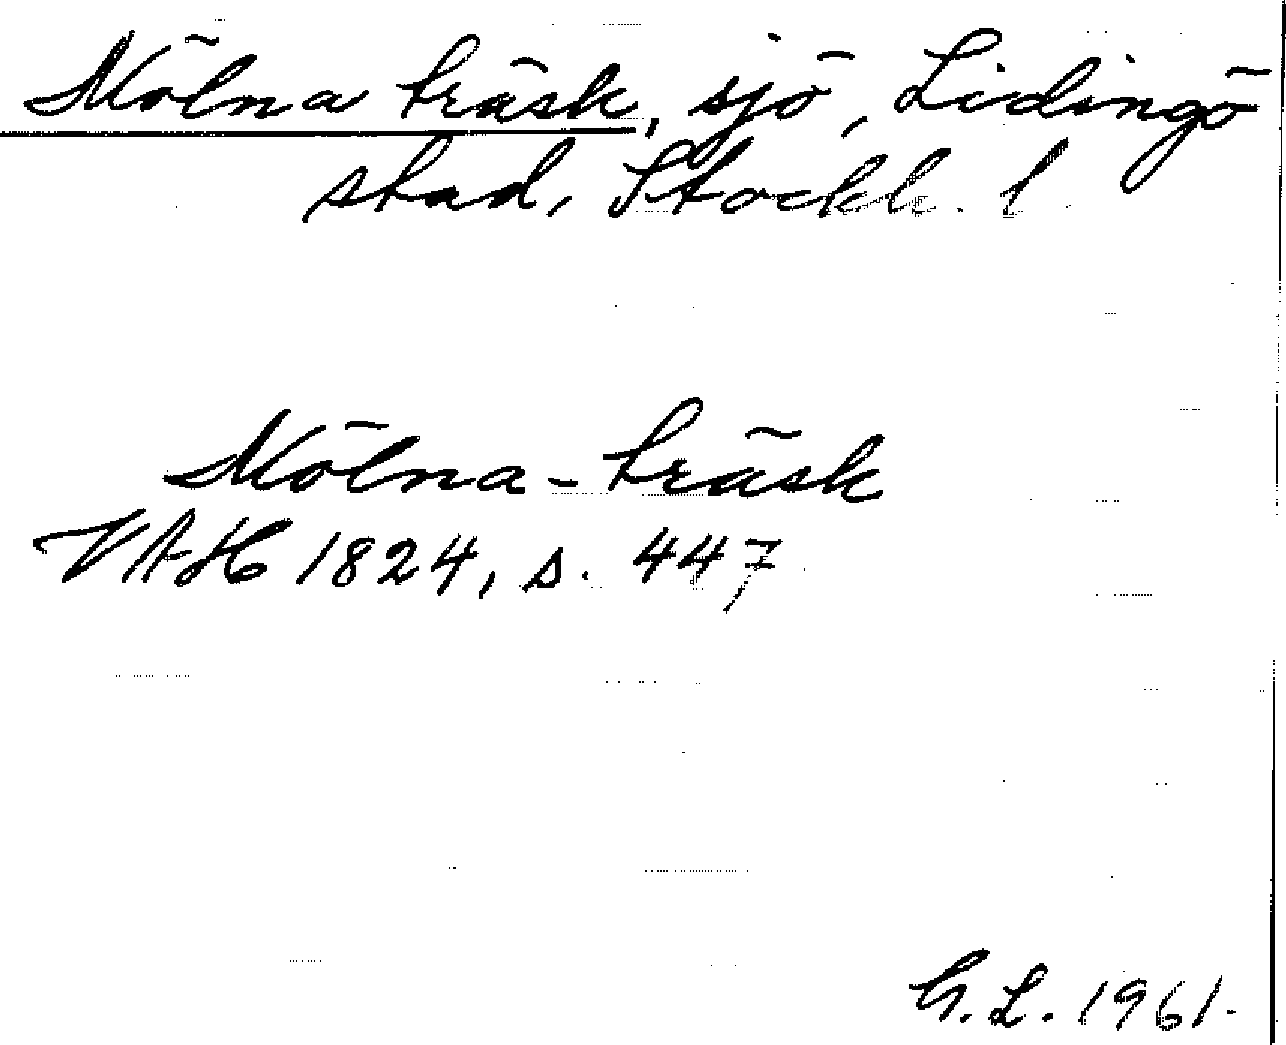 Mölna träsk, sjö, Lidingö
stad, Stockh. l
Mölna-träsk
VAH 1824, s. 447
G.L. 1961.